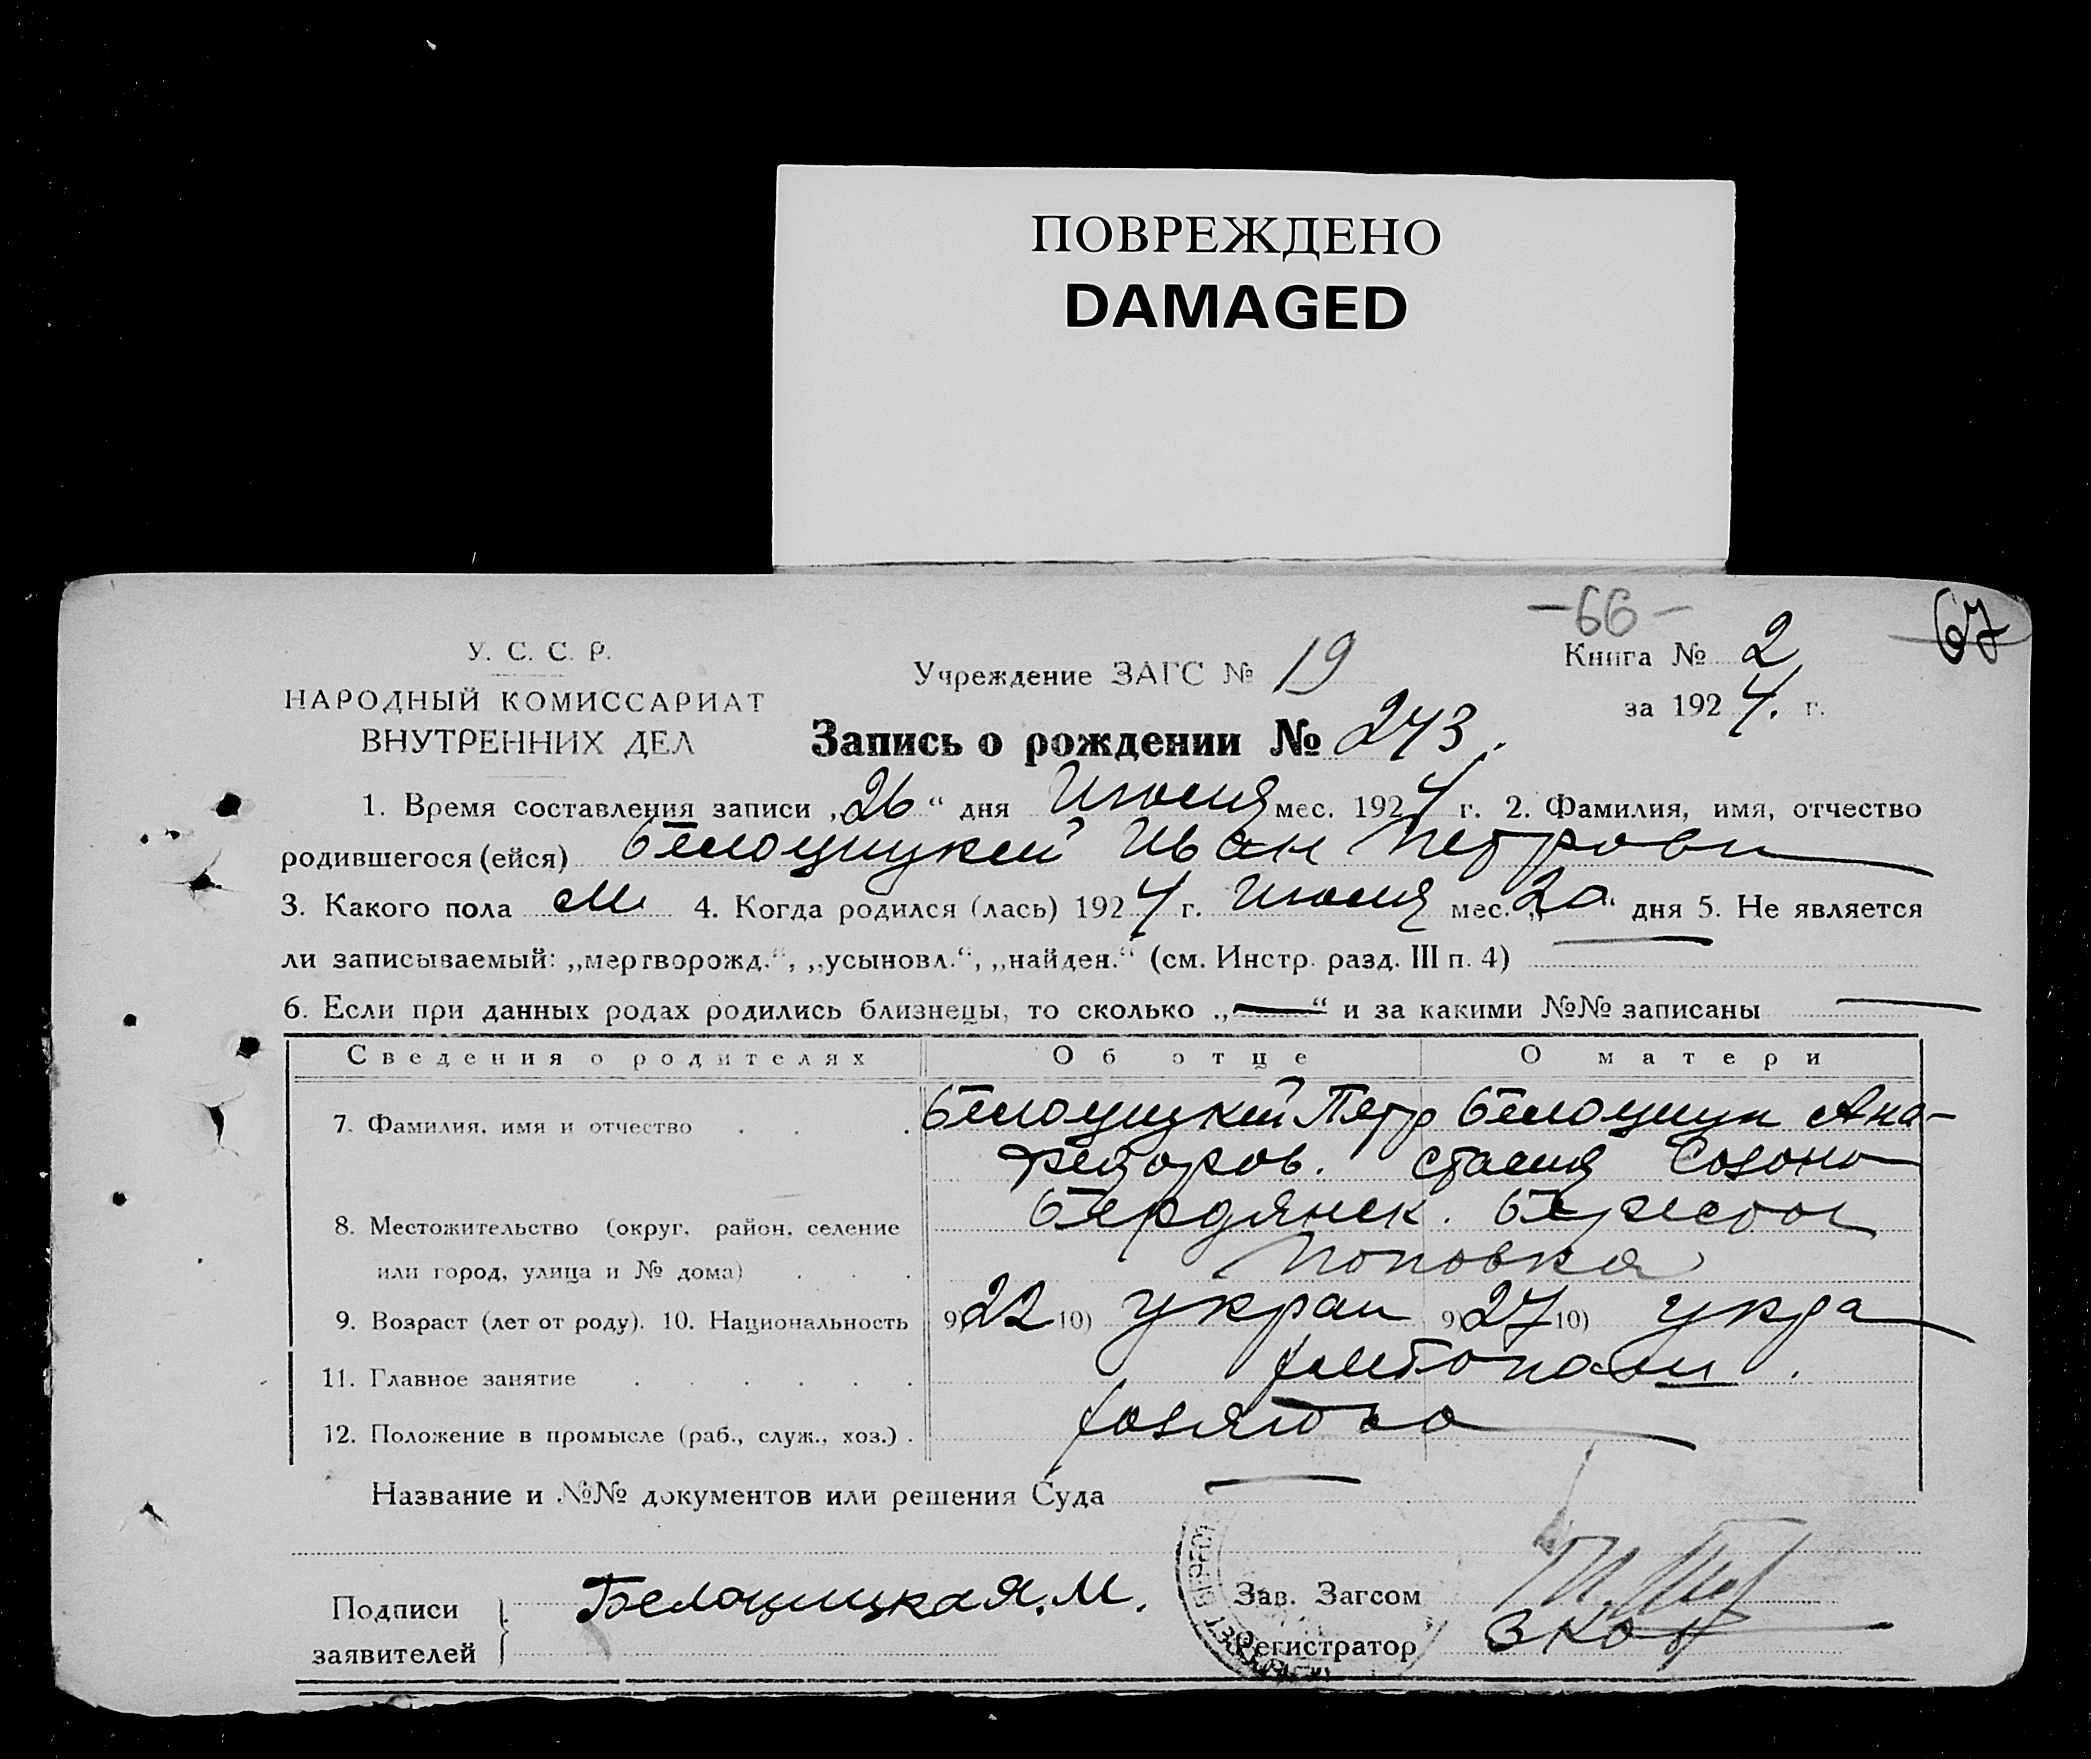 ПОВРЕЖДЕНО
DAMAGED
—66—
67
У. С. С. Р.
НАРОДНЫЙ КОМИССАРИАТ
ВНУТРЕННИХ ДЕЛ
Учреждение ЗАГС № 19
Книга № 2
за 1924. г.
Запись о рождении № 243.
1. Время составления записи „26“ дня Июля мес. 1924 г. 2. Фамилия, имя, отчество
родившегося (ейся) Белоцицкий Иван Петрови
3. Какого пола м. 4. Когда родился (лась) 1924 г. Июля мес. „20“ дня 5. Не является
ли записываемый: „мертворожд.“, „усыновл.“, „найден.“ (см. Инстр. разд. III п. 4) —
6. Если при данных родах родились близнецы, то сколько „—“ и за какими №№ записаны —
Сведения о родителях Об отце О матери
7. Фамилия, имя и отчество Белоцицкий Петр Белоцицк Ана-
Федоров. стасия Созоно
8. Местожительство (округ, район, селение Бердянск. Берестов
или город, улица и № дома) Поповка
9. Возраст (лет от роду). 10. Национальность 9) 22 10) украи 9) 27 10) укра
11. Главное занятие хлебопаш.
12. Положение в промысле (раб., служ., хоз.)
Название и №№ документов или решения Суда —
Подписи
заявителей
Белоцицкая. М.
Зав. Загсом
Регистратор